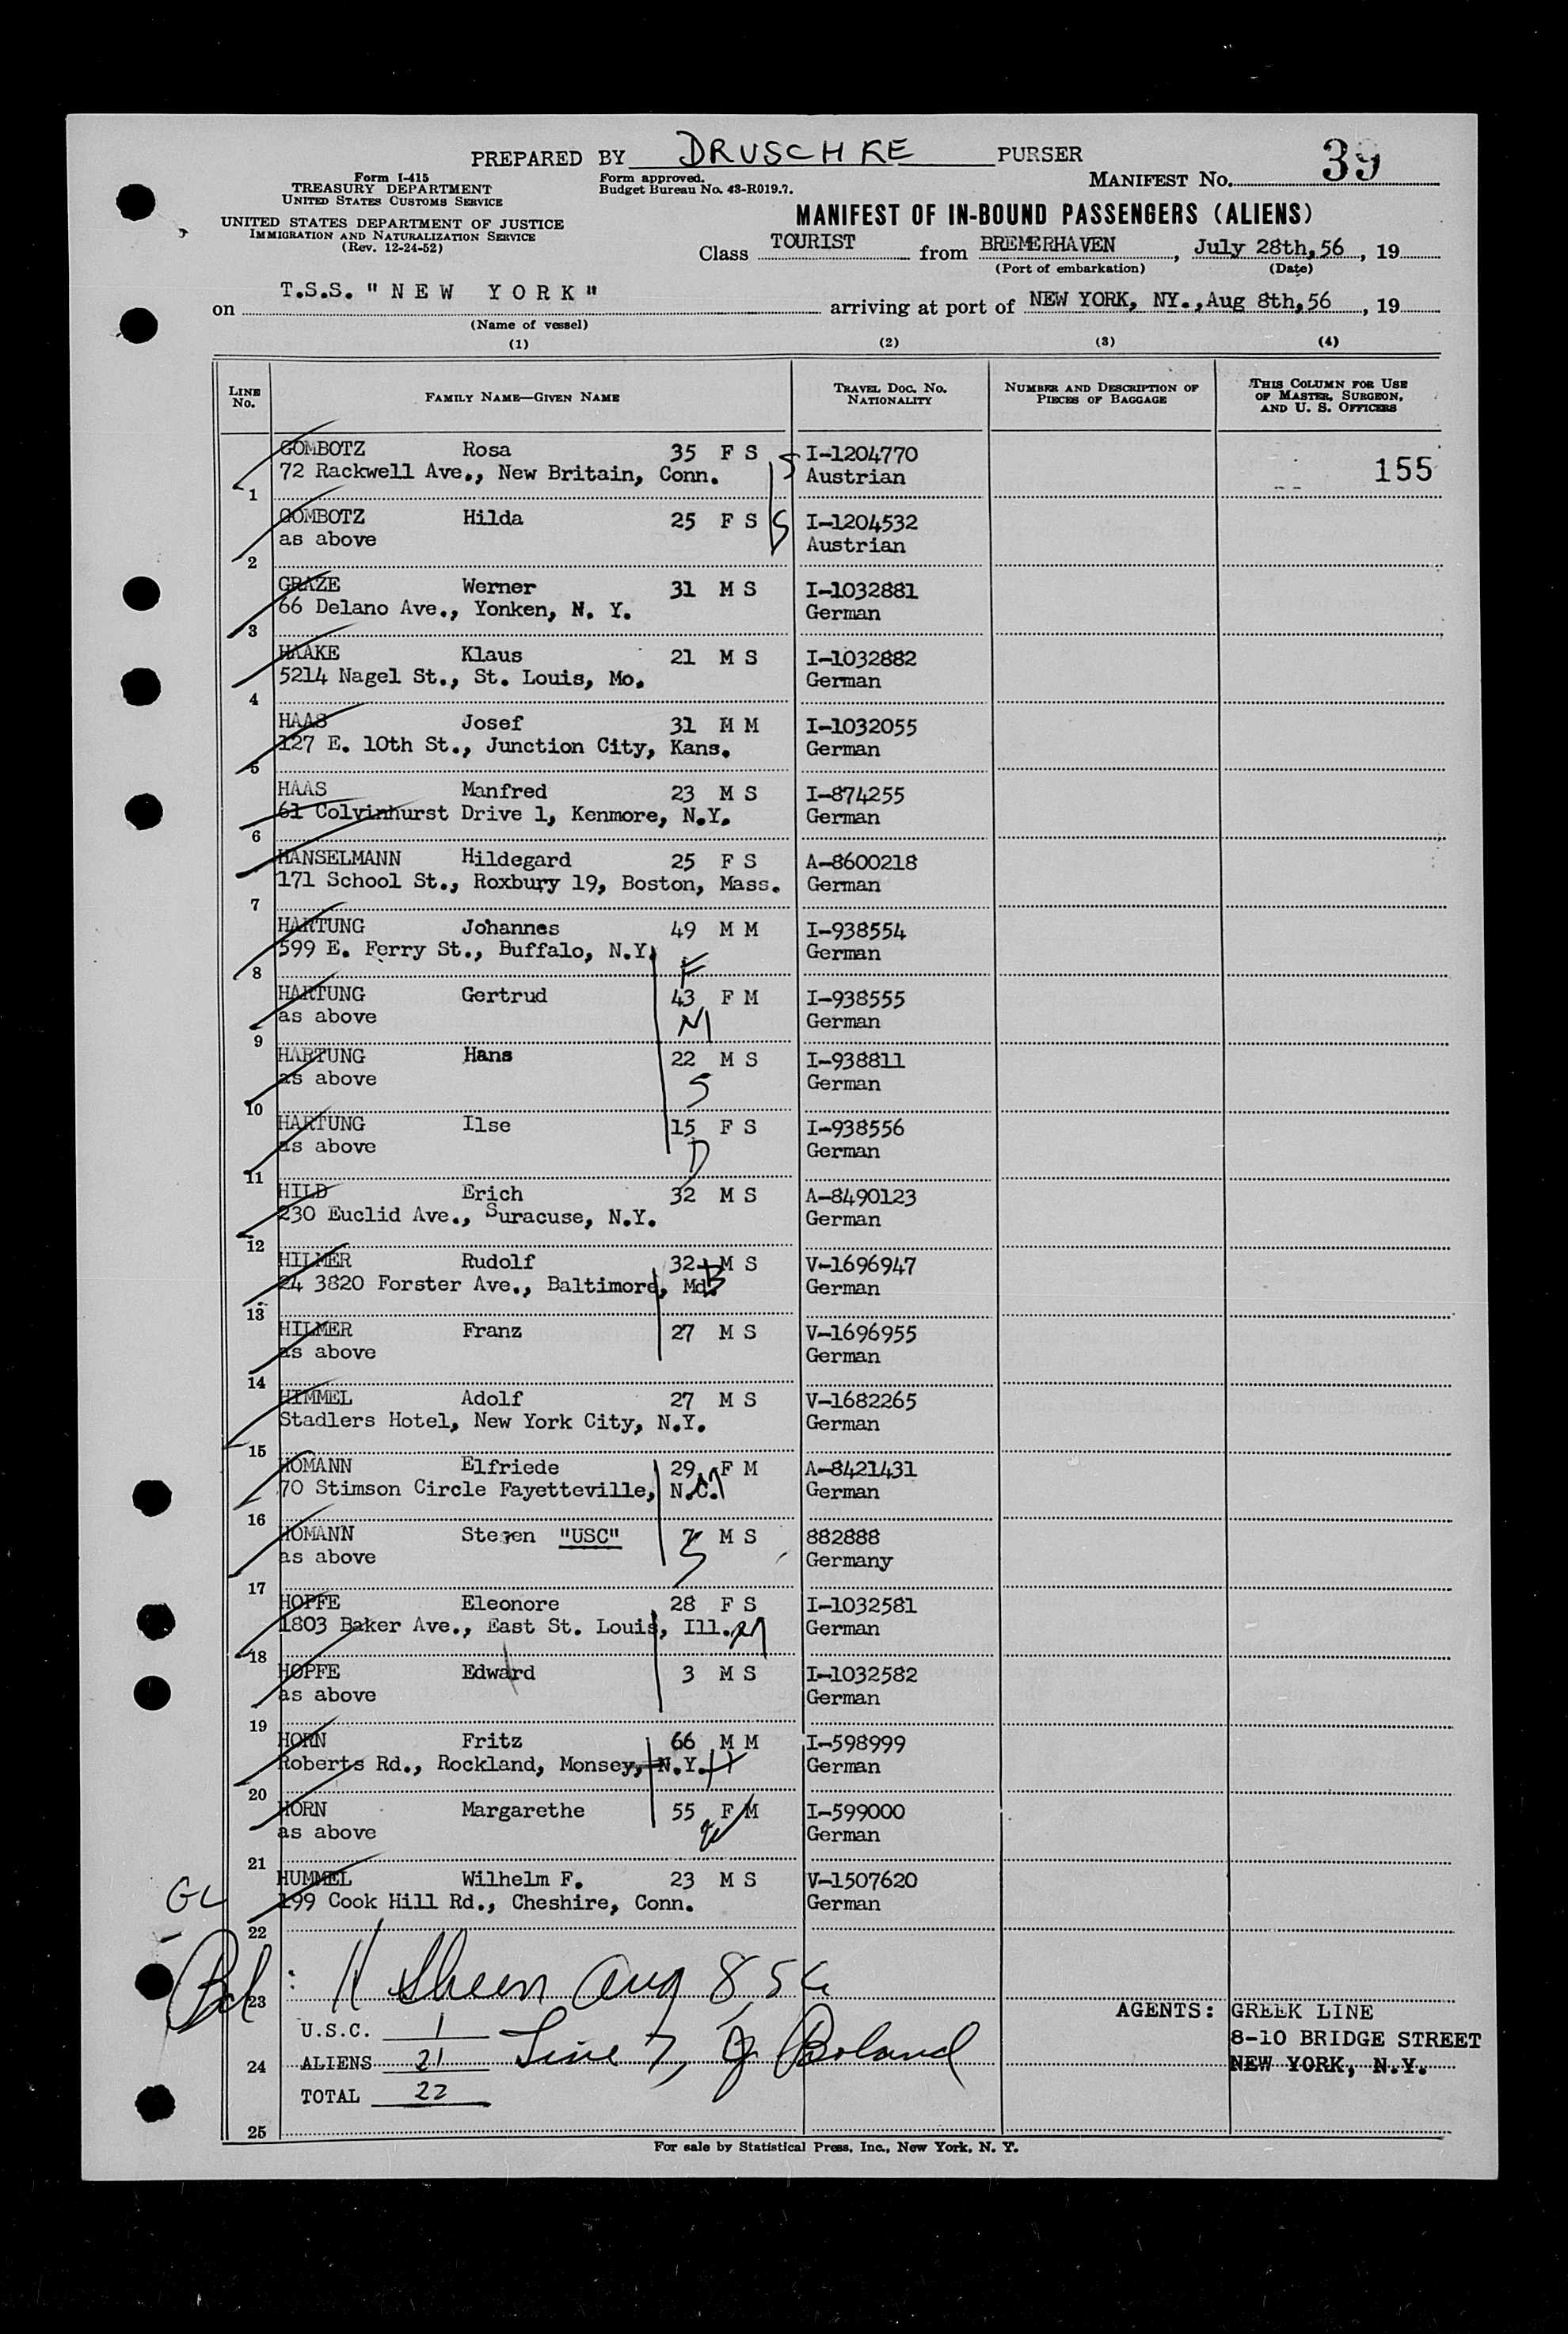 PREPARED BY DRUSCHKE PURSER
Form I-415
TREASURY DEPARTMENT
UNITED STATES CUSTOMS SERVICE
Form approved.
Budget Bureau No. 43-R019.7.
MANIFEST No. 39
UNITED STATES DEPARTMENT OF JUSTICE
IMMIGRATION AND NATURALIZATION SERVICE
(Rev. 12-24-52)
MANIFEST OF IN-BOUND PASSENGERS (ALIENS)
Class TOURIST from BREMERHAVEN, July 28th, 56, 19
(Port of embarkation) (Date)
on T.S.S. "NEW YORK" arriving at port of NEW YORK, NY., Aug 8th, 56, 19
(Name of vessel)
(1) (2) (3) (4)
LINE No. FAMILY NAME—GIVEN NAME TRAVEL DOC. NO. NATIONALITY NUMBER AND DESCRIPTION OF PIECES OF BAGGAGE THIS COLUMN FOR USE OF MASTER, SURGEON, AND U. S. OFFICERS
GOMBOTZ Rosa 35 F S S I-1204770 155
72 Rackwell Ave., New Britain, Conn. Austrian
1
GOMBOTZ Hilda 25 F S S I-1204532
as above Austrian
2
GRAZE Werner 31 M S I-1032881
66 Delano Ave., Yonken, N. Y. German
3
HAAKE Klaus 21 M S I-1032882
5214 Nagel St., St. Louis, Mo. German
4
HAAS Josef 31 M M I-1032055
127 E. 10th St., Junction City, Kans. German
5
HAAS Manfred 23 M S I-874255
61 Colvinhurst Drive 1, Kenmore, N.Y. German
6
HANSELMANN Hildegard 25 F S A-8600218
171 School St., Roxbury 19, Boston, Mass. German
7
HARTUNG Johannes 49 M M I-938554
599 E. Ferry St., Buffalo, N.Y. F German
8
HARTUNG Gertrud 43 F M I-938555
as above M German
9
HARTUNG Hans 22 M S I-938811
as above S German
10
HARTUNG Ilse 15 F S I-938556
as above D German
11
HILD Erich 32 M S A-8490123
230 Euclid Ave., Suracuse, N.Y. German
12
HILMER Rudolf 32 M S V-1696947
24 3820 Forster Ave., Baltimore, Md. B German
13
HILMER Franz 27 M S V-1696955
as above German
14
HIMMEL Adolf 27 M S V-1682265
Stadlers Hotel, New York City, N.Y. German
15
HOMANN Elfriede 29 F M A-8421431
70 Stimson Circle Fayetteville, N.C. M German
16
HOMANN Stegen "USC" 7 M S 882888
as above S Germany
17
HOPFE Eleonore 28 F S I-1032581
1803 Baker Ave., East St. Louis, Ill. M German
18
HOPFE Edward 3 M S I-1032582
as above German
19
HORN Fritz 66 M M I-598999
Roberts Rd., Rockland, Monsey, N.Y. H German
20
HORN Margarethe 55 F M I-599000
as above W German
21
HUMMEL Wilhelm F. 23 M S V-1507620
GL 199 Cook Hill Rd., Cheshire, Conn. German
22
Bd: H Sheen Aug 8, 56
23
AGENTS: GREEK LINE
U.S.C. 1 Line 7, J Boland
8-10 BRIDGE STREET
24 ALIENS 21
NEW YORK, N.Y.
TOTAL 22
25
For sale by Statistical Press, Inc., New York, N. Y.